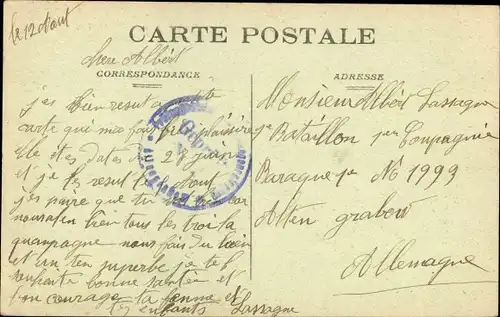 le 12 aout
CARTE POSTALE
cher Albért
CORRESPONDANCE
ADRESSE
j'es bien resut
carte qui ma fait plaisire
elle étes datés du 28 juin
et je les resut le aout
j'es
bien tous les trois la
quampagne nous fais du bien
et un ten superbe je te
souhaite bonne santée et
bon courage ta femme et
tes enfants Lassagne
Monsieur Albert Lassagne
1e Bataillon 1er Compagnie
Baraque 1e No 1993
Alten graben
Allemagne
Geprüft